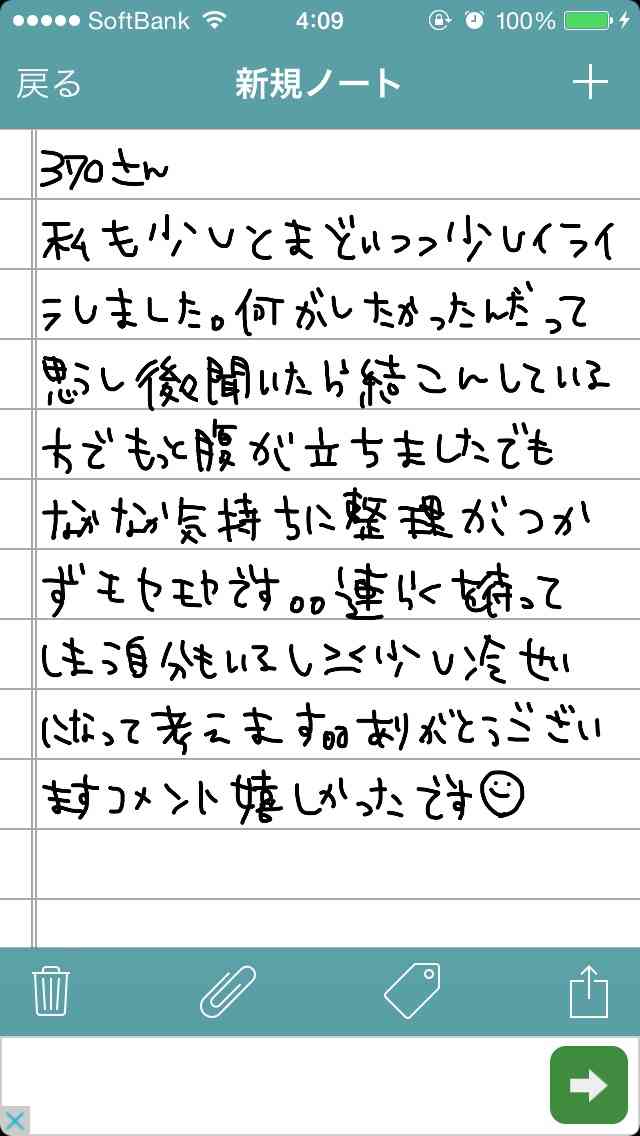 SoftBank 4:09 100%
戻る 新規ノート
370さん
私も少しとまどいつつ少しイライ
ラしました。何がしたかったんだって
思うし後々聞いたら結こんしている
方でもっと腹が立ちましたでも
なかなか気持ちに整理がつか
ずモヤモヤです。。連らくを待って
しまう自分もいるし>_<少し冷せい
になって考えます。。ありがとうござい
ますコメント嬉しかったです☺